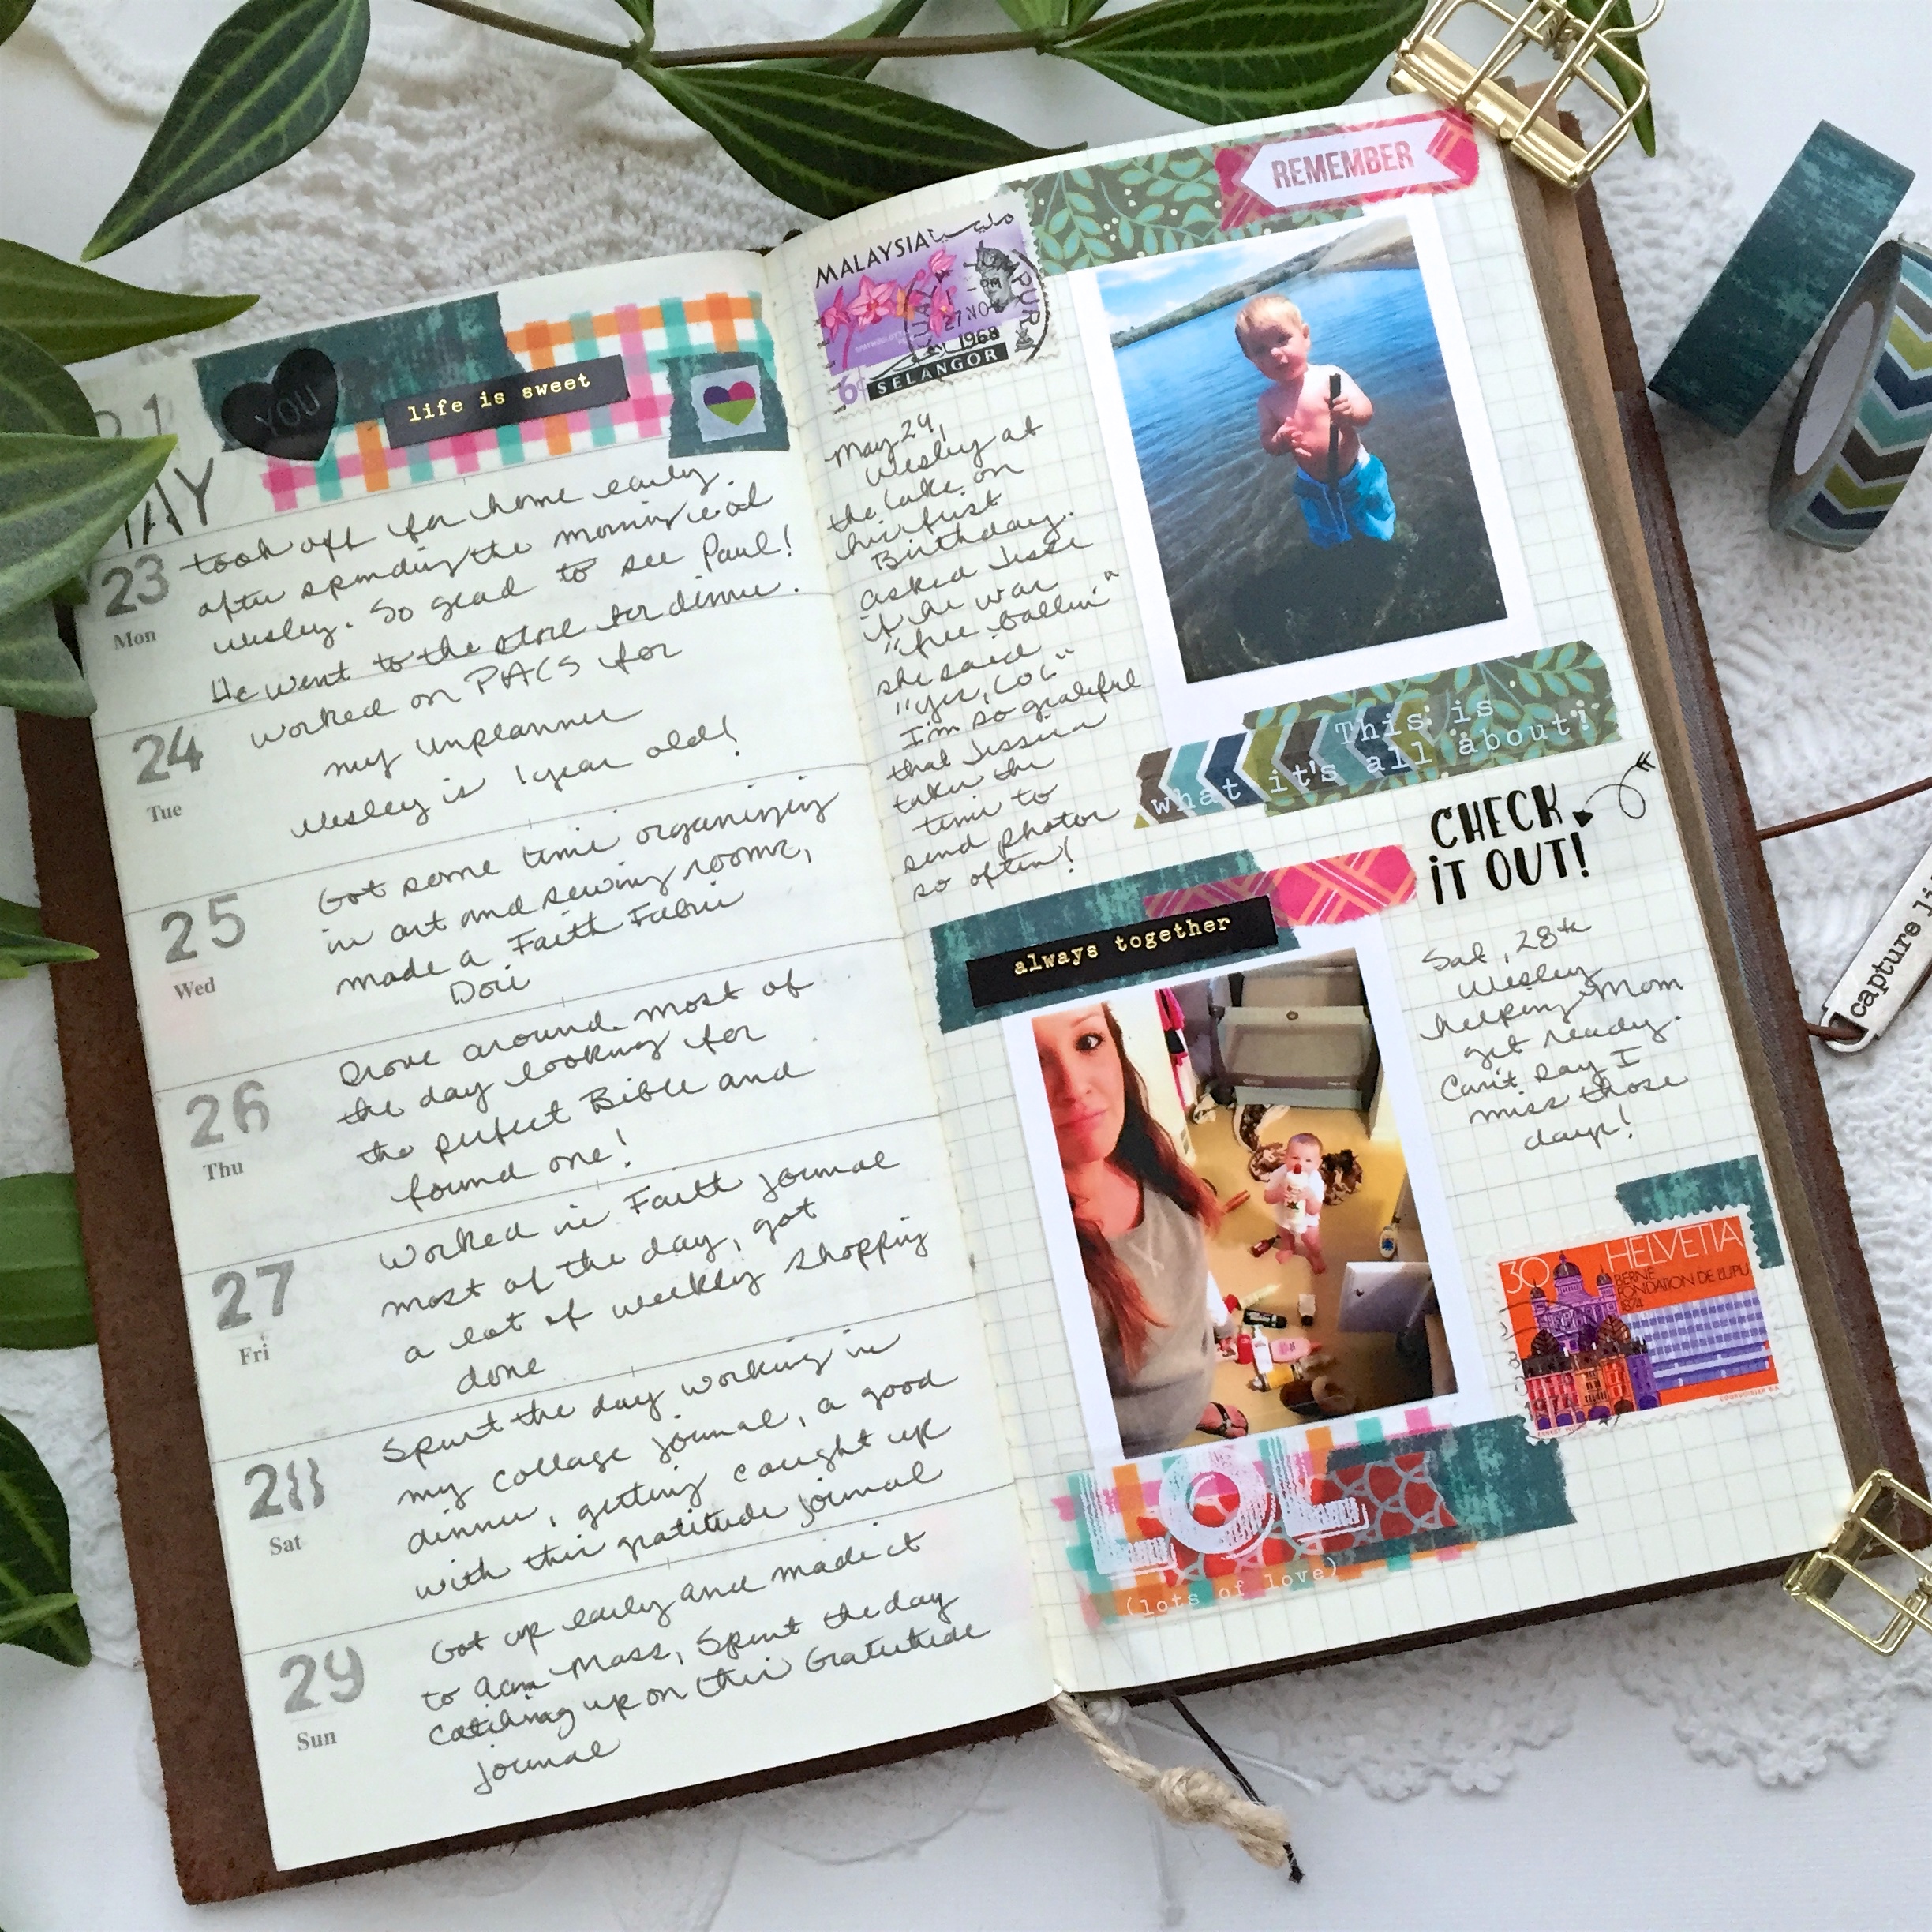 21
MAY
YOU
life is sweet
23
Mon
took off for home early
after spending the morning w/
Wesley. So glad to see Paul!
He went to the store for dinner.
24
Tue
worked on PACS for
my Unplanner
Wesley is 1 year old!
25
Wed
Got some time organizing
in art and sewing rooms,
made a Faith Fabric
Dori
26
Thu
Drove around most of
the day looking for
the perfect Bible and
found one!
27
Fri
Worked in Faith journal
most of the day, got
a lot of weekly shopping
done
28
Sat
Spent the day working in
my collage journal, a good
dinner, getting caught up
with this gratitude journal
29
Sun
Got up early and made it
to 9am Mass, Spent the day
catching up on this Gratitude
journal
REMEMBER
MALAYSIA
مليسيا
27 NO
1968
6c
SELANGOR
May 24,
Wesley at
the lake on
his first
Birthday.
asked Jesse
if he was
"free ballin"
she said
"yes, LOL"
I'm so grateful
that Jessica
takes the
time to
send photos
so often!
This is
what it's all about!
CHECK
iT OUT!
always together
Sat, 28th
Wesley
helping Mom
get ready.
Can't say I
miss those
days!
30 HELVETIA
BERNE
FONDATION DE L'UPU
1874
COURVOISIER S.A.
LOL
(lots of love)
capture li